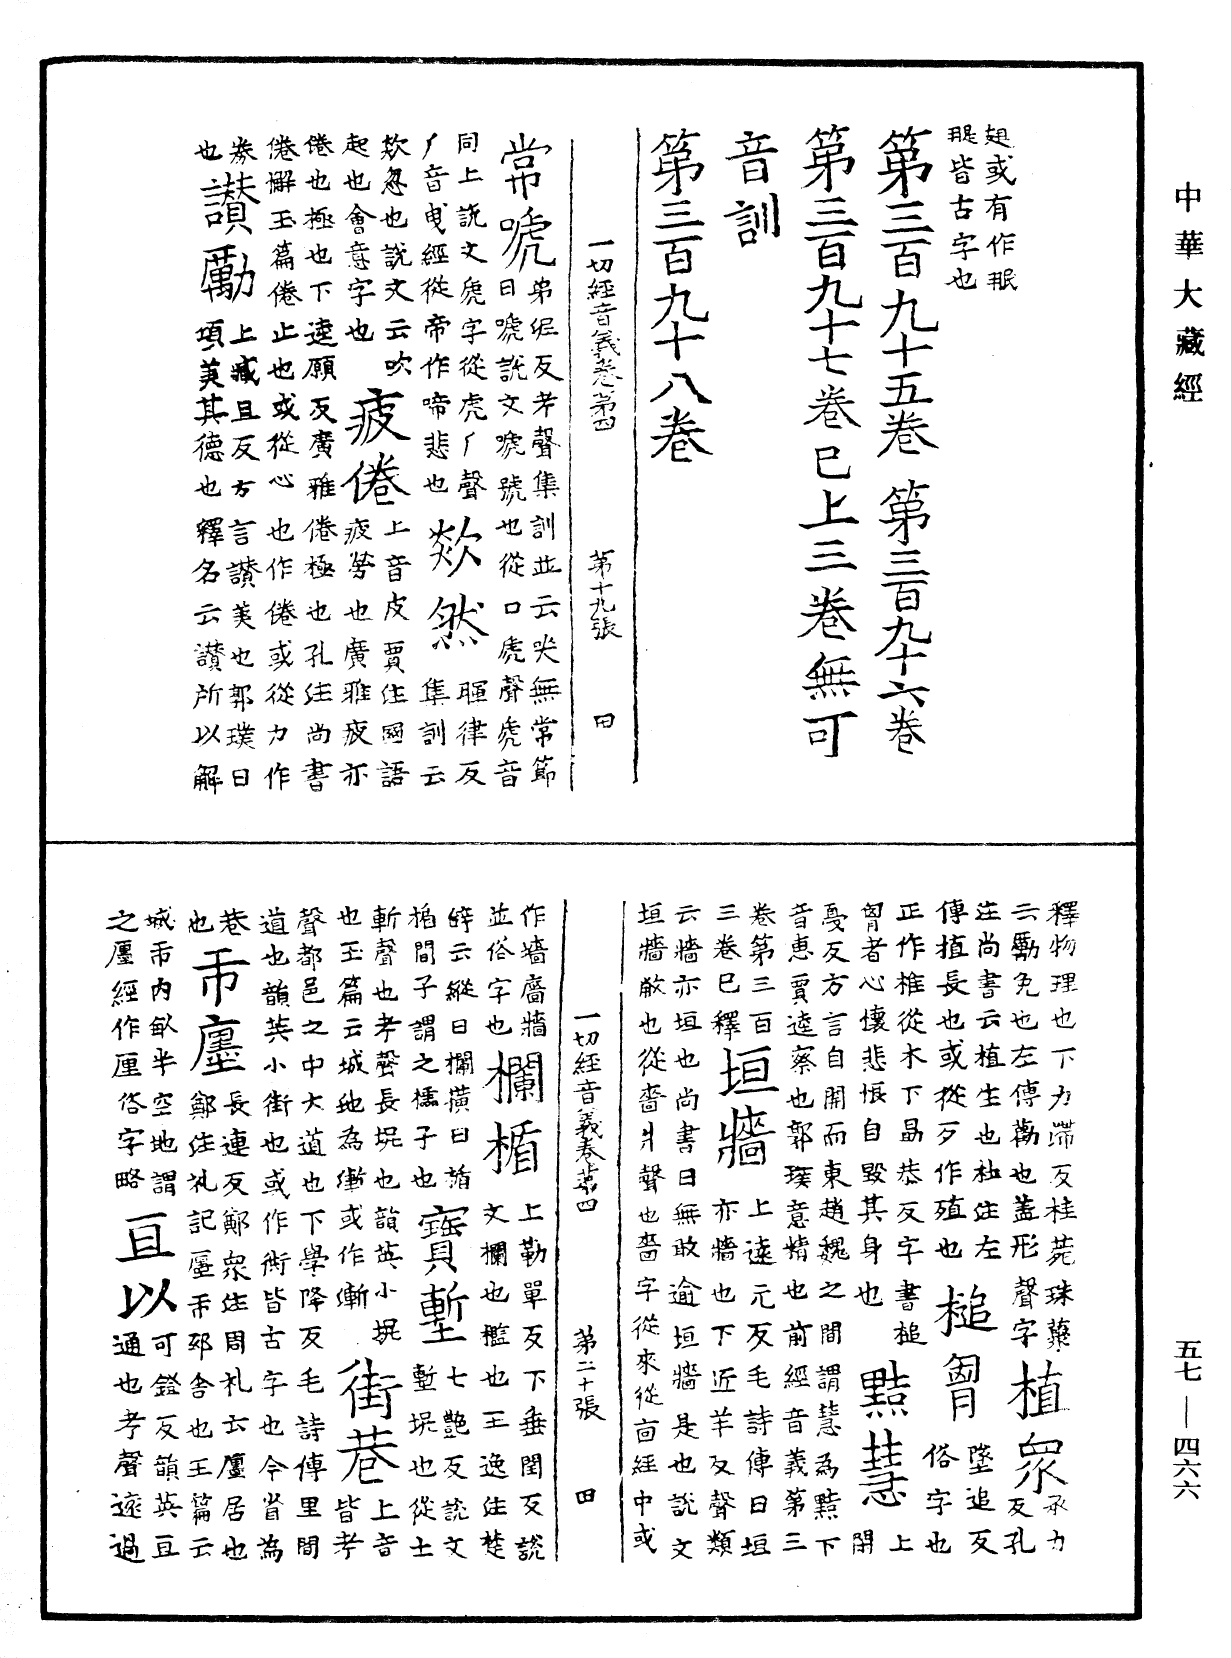 趄或有作眠
䫌皆古字也
第三百九十五卷　第三百九十六卷
第三百九十七卷已上三卷無可
音訓
第三百九十八卷
一切經音義卷第四　第十九張　田
常唬弟泥反考聲集訓並云哭無常節曰唬說文唬號也從口虒聲虒音
同上說文虒字從虎厂聲厂音曳經從帝作啼悲也　欻然　暉律反集訓云
欻忽也說文云吹起也會意字也　疲倦　上音皮賈注國語疲勞也廣雅疲亦
倦也極也下逵願反廣雅倦極也孔注尚書倦懈玉篇倦止也或從心也作倦或從力作
劵也　讚勵　上臧且反方言讚美也郭璞曰頌美其德也釋名云讚所以解
釋物理也下力滯反桂菀珠藂云勵免也左傳勸也蓋形聲字　植眾　承力反孔
注尚書云植生也杜注左傳植長也或從歹作殖也　槌胷　墜追反俗字也
正作椎從木下勗恭反字書槌胷者心懷悲悵自毀其身也　黠慧　上閑
戛反方言自關而東趙魏之間謂慧為黠下音惠賈逵察也郭璞意精也前經音義第三
卷第三百三卷已釋　垣牆　上遠元反毛詩傳曰垣亦牆也下近羊反聲類
云牆亦垣也尚書曰無敢逾垣牆是也說文垣牆蔽也從嗇爿聲也嗇字從來從㐭經中或
一切經音義卷苐四　第二十張　田
作墻廧牆並俗字也　欄楯　上勒單反下垂閏反說文欄也檻也王逸注楚
辤云縱曰欄橫曰楯楯間子謂之櫺子也　寶塹　七艷反說文塹坑也從土
斬聲也考聲長坑也韻英小坑也玉篇云城池為塹或作漸　街巷　上音皆考
聲都邑之中大道也下學降反毛詩傳里間道也韻英小街也或作衖皆古字也今省為
巷也　市廛　長連反鄭眾注周礼云廛居也鄭注礼記廛市邸舍也玉篇云
城市內畝半空地謂之廛經作厘俗字略　亘以　可鐙反韻英亘通也考聲遠過
中華大藏經
五七—四六六